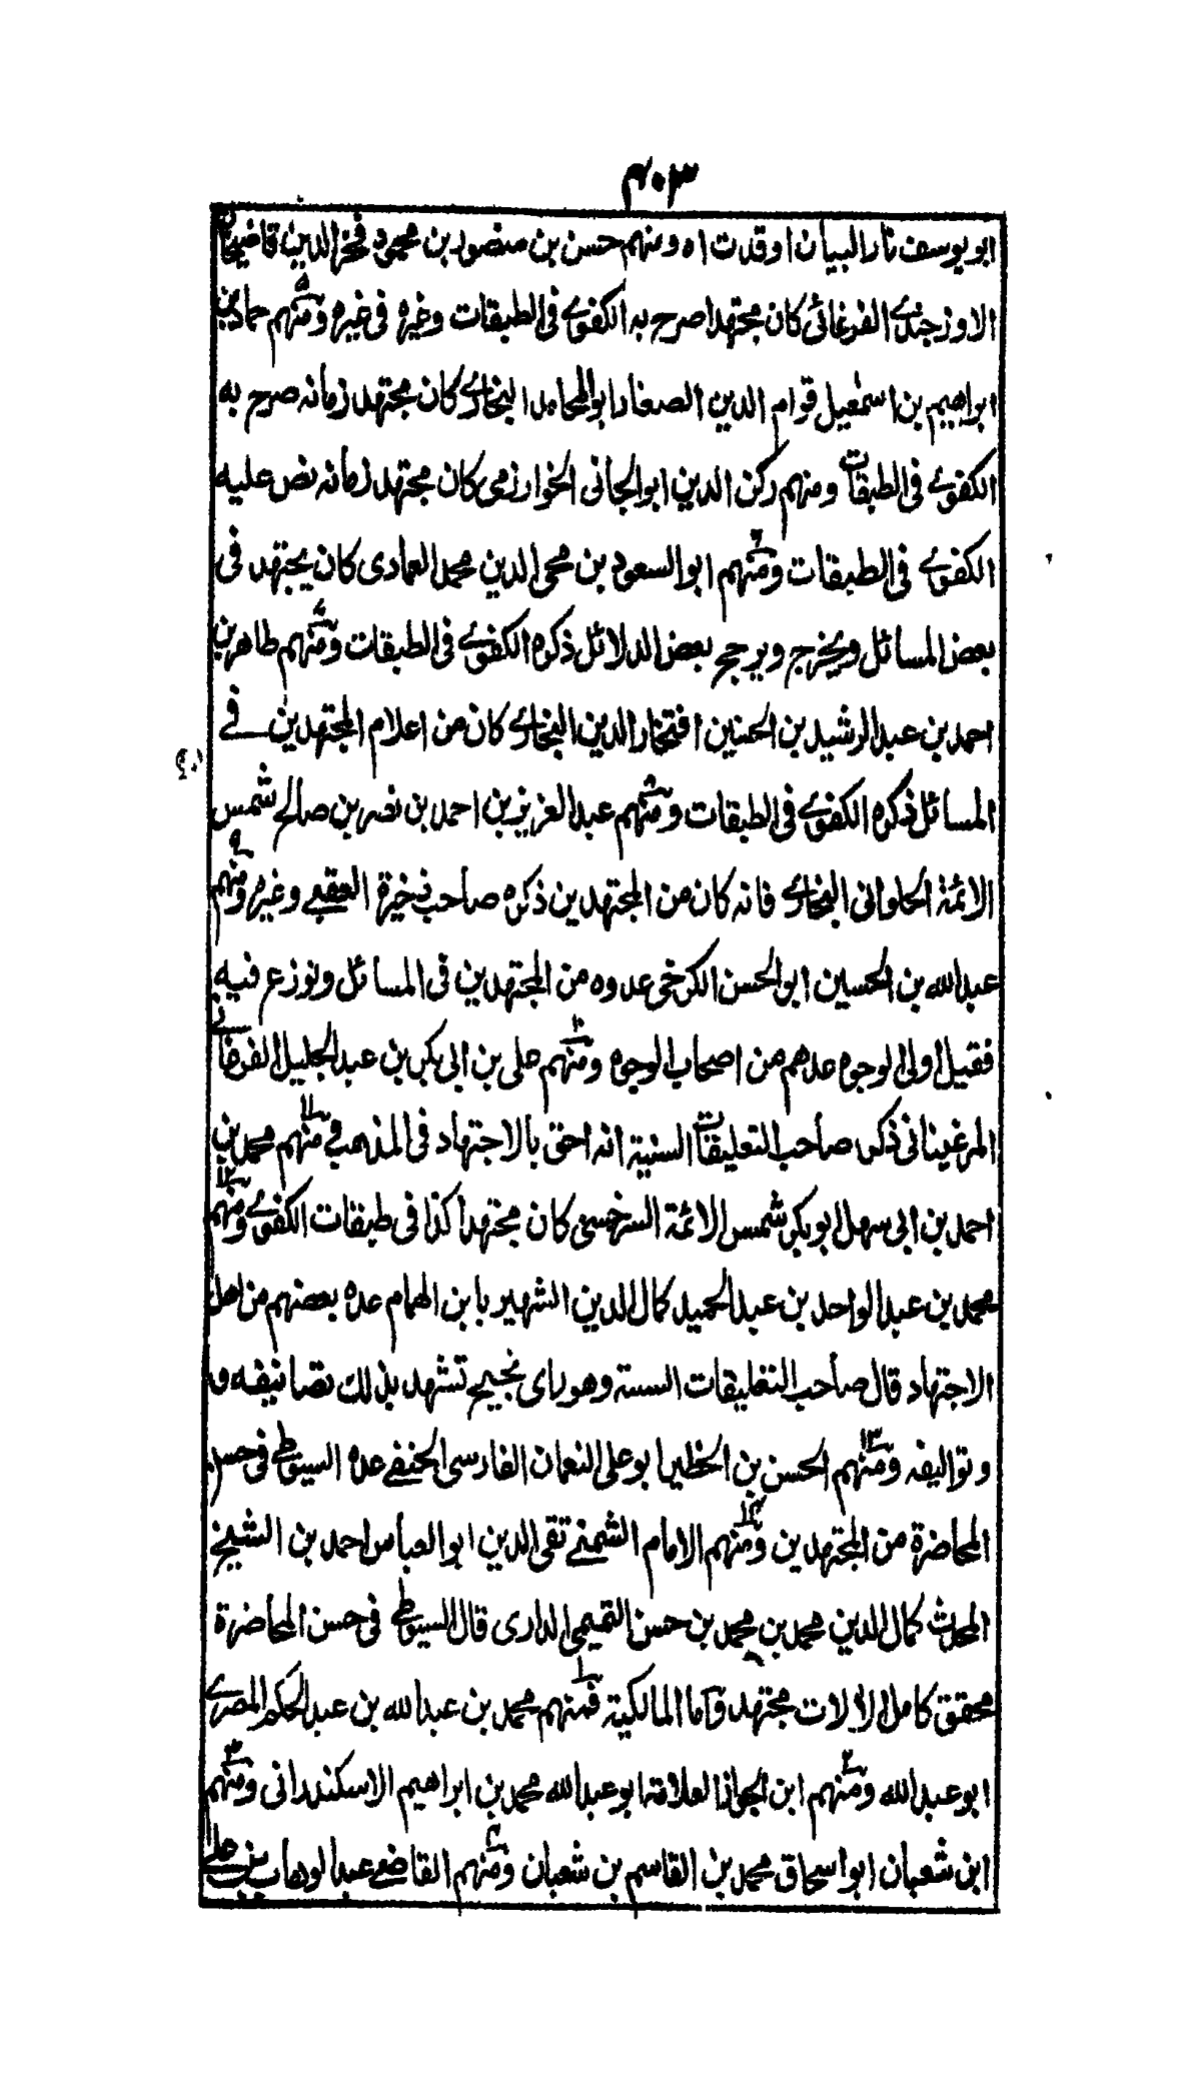 ٤٠٣
ابو يوسف نار البيان اوقدت اه ومنهم حسن بن منصور بن محمود فخر الدين قاضيخان
الاوزجندي الفرغاني كان مجتهدا صرح به الكفوي في الطبقات وغيره في غيره ومنهم حماد بن
ابراهيم بن اسمعيل قوام الدين الصفار ابو المحامد البخاري كان مجتهد زمانه صرح به
الكفوي في الطبقات ومنهم ركن الدين ابو الجاني الخوارزمي كان مجتهد زمانه نص عليه
الكفوي في الطبقات ومنهم ابو السعود بن محي الدين محمد العمادي كان يجتهد في
بعض المسائل ويخرج ويرجح بعض الدلائل ذكره الكفوي في الطبقات ومنهم طاهر بن
احمد بن عبد الرشيد بن الحسين افتخار الدين البخاري كان من اعلام المجتهدين في
المسائل ذكره الكفوي في الطبقات ومنهم عبد العزيز بن احمد بن نصر بن صالح شمس
الائمة الحلواني البخاري فانه كان من المجتهدين ذكره صاحب ذخيرة العقبى وغيره ومنهم
عبد الله بن الحسين ابو الحسن الكرخي عدوه من المجتهدين في المسائل ونوزع فيه
فقيل اولى الوجوه عدهم من اصحاب الوجوه ومنهم علي بن ابي بكر بن عبد الجليل الفرغاني
المرغيناني ذكر صاحب التعليقات السنية انه احق بالاجتهاد في المذهب ومنهم محمد بن
احمد بن ابي سهل ابو بكر شمس الائمة السرخسي كان مجتهدا كذا في طبقات الكفوي ومنهم
محمد بن عبد الواحد بن عبد الحميد كمال الدين الشهير بابن الهمام عده بعضهم من اهل
الاجتهاد قال صاحب التعليقات السنية وهو راي نجيح تشهد بذلك تصانيفه و
وتواليفه ومنهم الحسن بن الخطير ابو علي النعمان الفارسي الحنفي عده السيوطي في حسن
المحاضرة من المجتهدين ومنهم الامام الشمني تقي الدين ابو العباس احمد بن الشيخ
المحدث كمال الدين محمد بن محمد بن حسن التميمي الداري قال السيوطي في حسن المحاضرة
محقق كامل الالات مجتهد واما المالكية فمنهم محمد بن عبد الله بن عبد الحكم المصري
ابو عبد الله ومنهم ابن المواز العلامة ابو عبد الله محمد بن ابراهيم الاسكندراني ومنهم
ابن شعبان ابو اسحاق محمد بن القاسم بن شعبان ومنهم القاضي عبد الوهاب بن علي